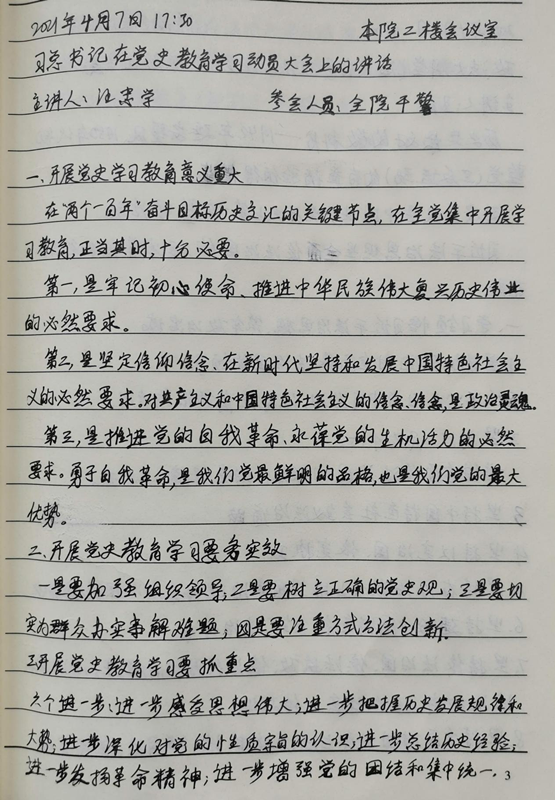 2021年4月7日 17:30 本院二楼会议室
习总书记在党史教育学习动员大会上的讲话
主讲人:汪忠学 参会人员:全院干警
一、开展党史学习教育意义重大
在"两个一百年"奋斗目标历史交汇的关键节点,在全党集中开展学
习教育,正当其时,十分必要。
第一,是牢记初心使命、推进中华民族伟大复兴历史伟业
的必然要求。
第二,是坚定信仰信念、在新时代坚持和发展中国特色社会主
义的必然要求。对共产主义和中国特色社会主义的信念、信念,是政治灵魂。
第三,是推进党的自我革命、永葆党的生机活力的必然
要求。勇于自我革命,是我们党最鲜明的品格,也是我们党的最大
优势。
二、开展党史教育学习要务实效
一是要加强组织领导;二是要树立正确的党史观;三是要切
实为群众办实事解难题;四是要注重方式方法创新.
三开展党史教育学习要抓重点
六个进一步:进一步感受思想伟大;进一步把握历史发展规律和
大势;进一步深化对党的性质宗旨的认识;进一步总结历史经验;
进一步发扬革命精神;进一步增强党的团结和集中统一. 3